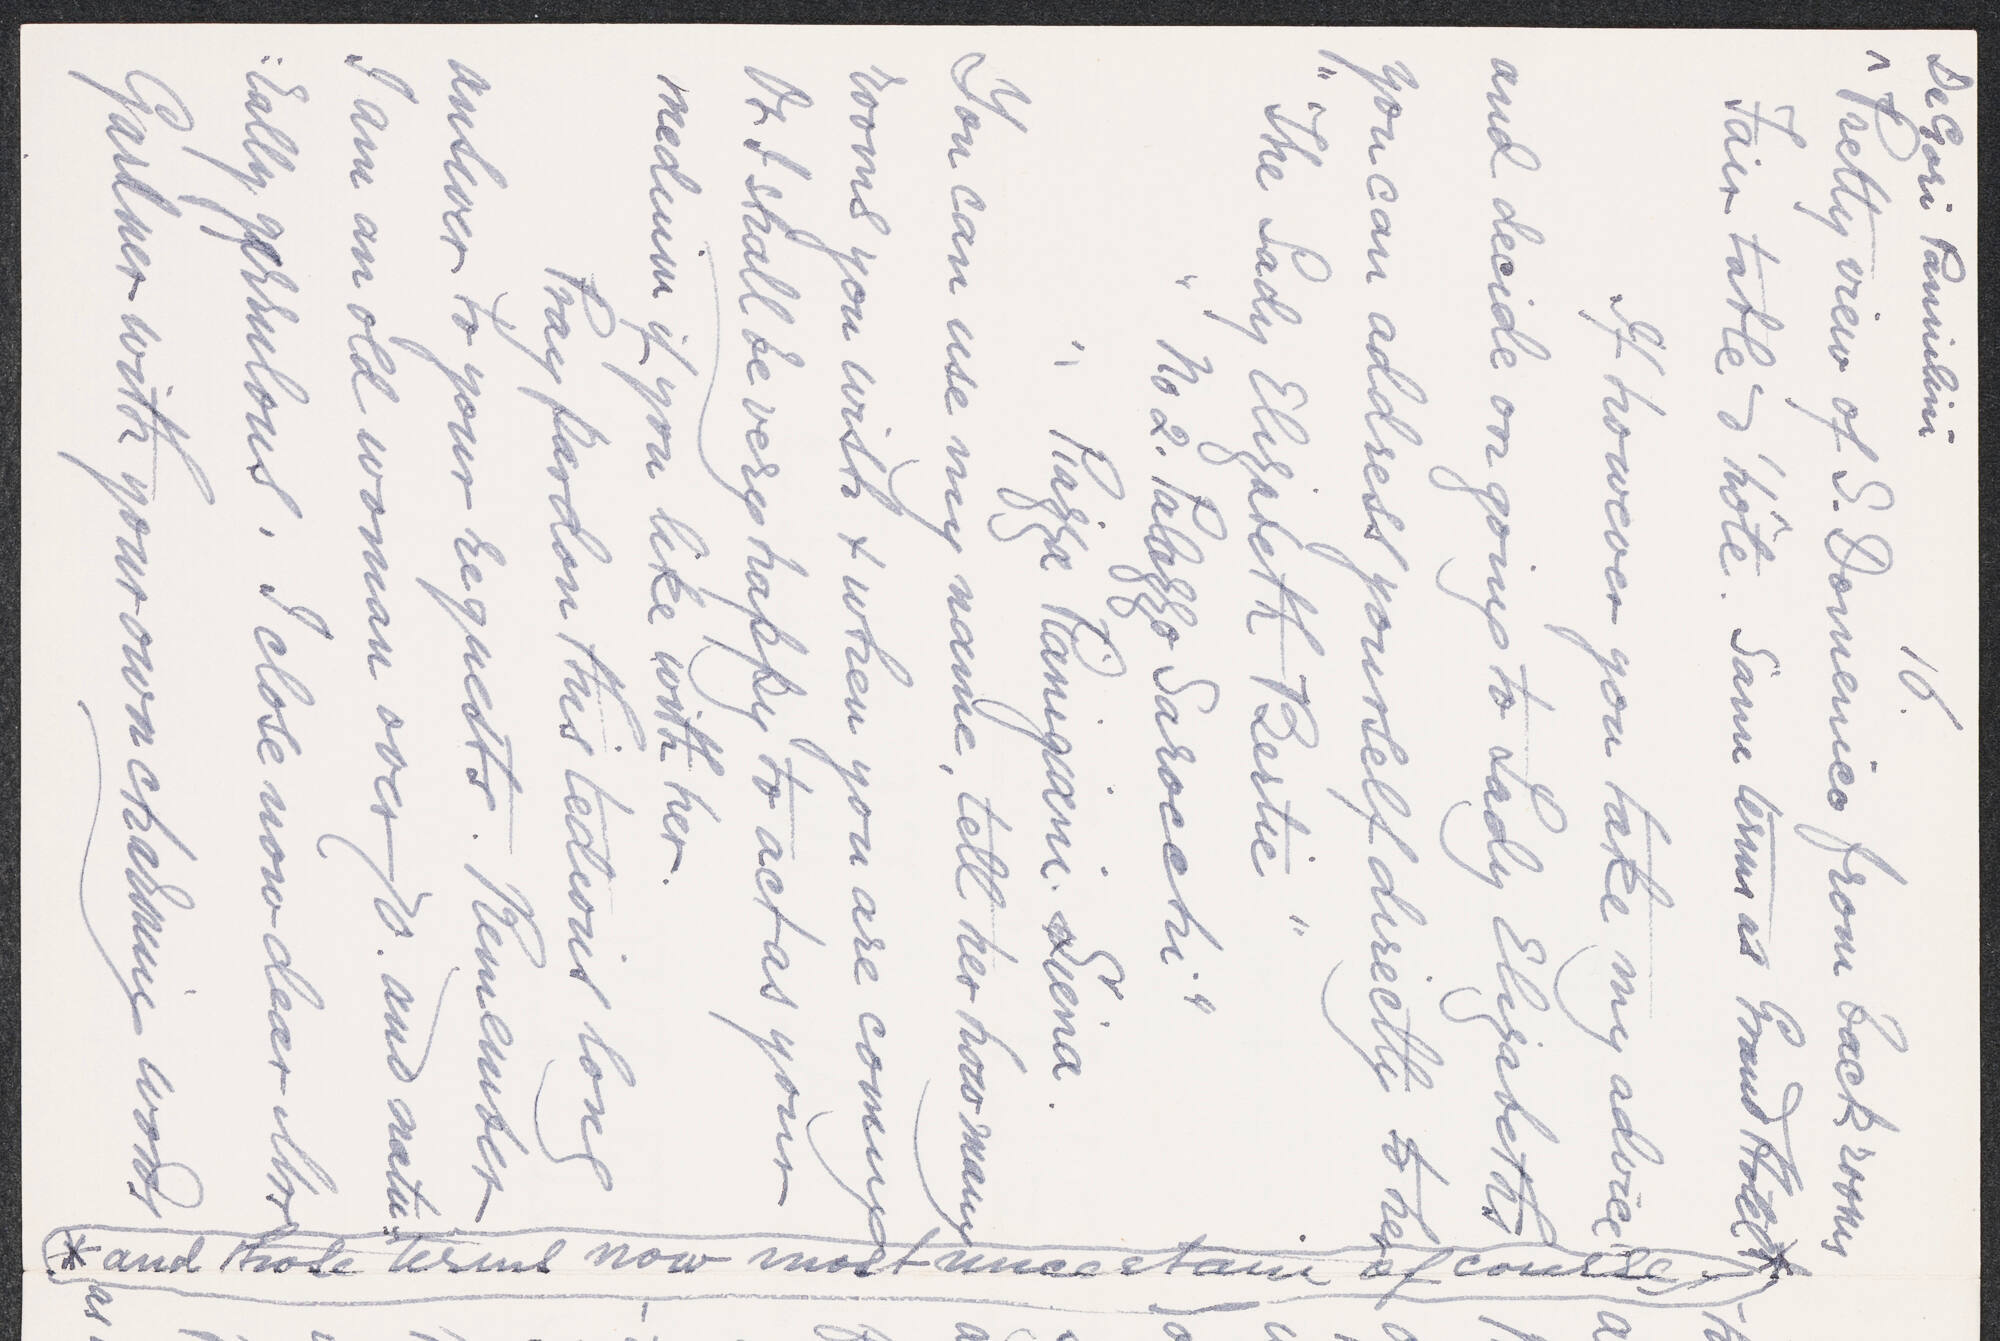 16.
De Gori Pannilini
^ Pretty view of S. Domenico from back rooms
Fair table d'hôte. Same terms as Grand Hotel *
If however you take my advice
and decide on going to Lady Elizabeth's
you can address yourself directly to her
" "The Lady Elizabeth Bertie "
" No 2. Palazzo Sarocchi "
" Piazza Pianigiani. Siena.
You can use my name, tell her how many
rooms you wish & when you are coming
Or I shall be very happy to act as your
medium if you like with her.
Pray pardon this tedious long
answer to your requests. Remember
I am an old woman over 70. and natu
:rally garrulous. I close now dear Mrs
Gardner with your own charming words
* and those terms now most uncertain of course.